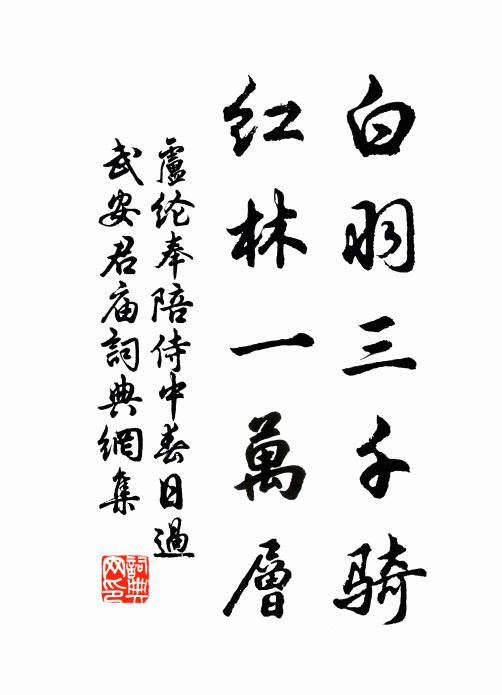 白羽三千骑
红林一萬層
盧纶奉陪侍中春日過
武安君庙詞典網集
詞典
网印